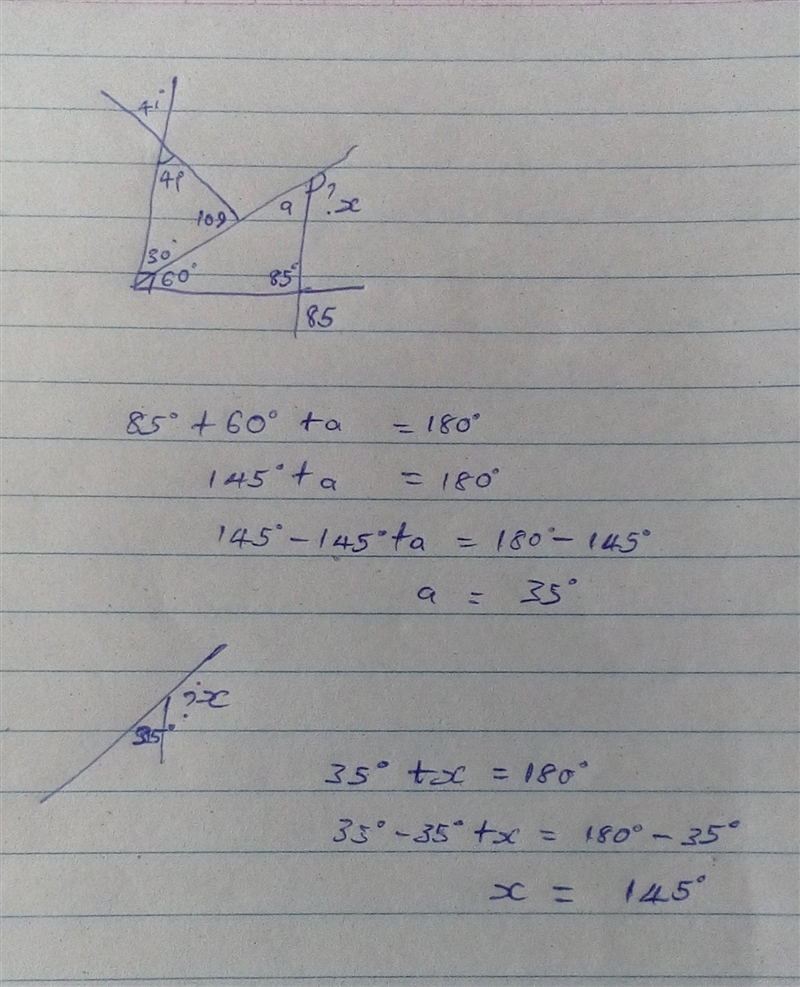 41°
41
109
a
? x
30°
60°
85°
85
85° + 60° + a = 180°
145° + a = 180°
145° - 145° + a = 180° - 145°
a = 35°
? x
35°
35° + x = 180°
35° - 35° + x = 180° - 35°
x = 145°